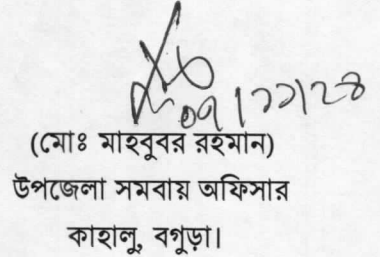 ০৭/১১/২৪
(মোঃ মাহবুবর রহমান)
উপজেলা সমবায় অফিসার
কাহালু, বগুড়া।